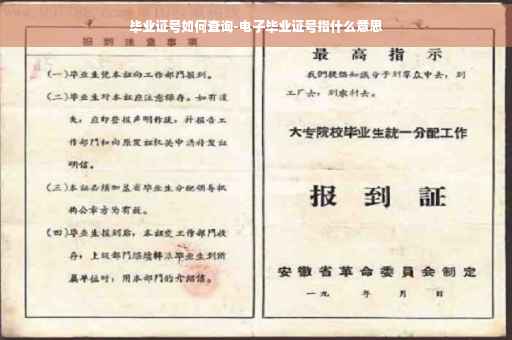 毕业证号如何查询-电子毕业证号指什么意思
报到注意事项
(一)毕业生凭本证向工作部门报到。
(二)毕业生对本证应注意保存。如有遗
失，应即登报声明作废，并报告工
作部门和向原发证机关申请补发证
明信。
(三)本证必须加盖省毕业生分配领导机
构公章方为有效。
(四)毕业生报到后，本证交工作部门收
存，上级部门
毕业生到所
属单位时，用本部门的介绍信。
最高指示
我们提倡知识分子到群众中去，到
工厂去，到农村去。
大专院校毕业生統一分配工作
报到証
安徽省革命委員会制定
一九 年 月 日